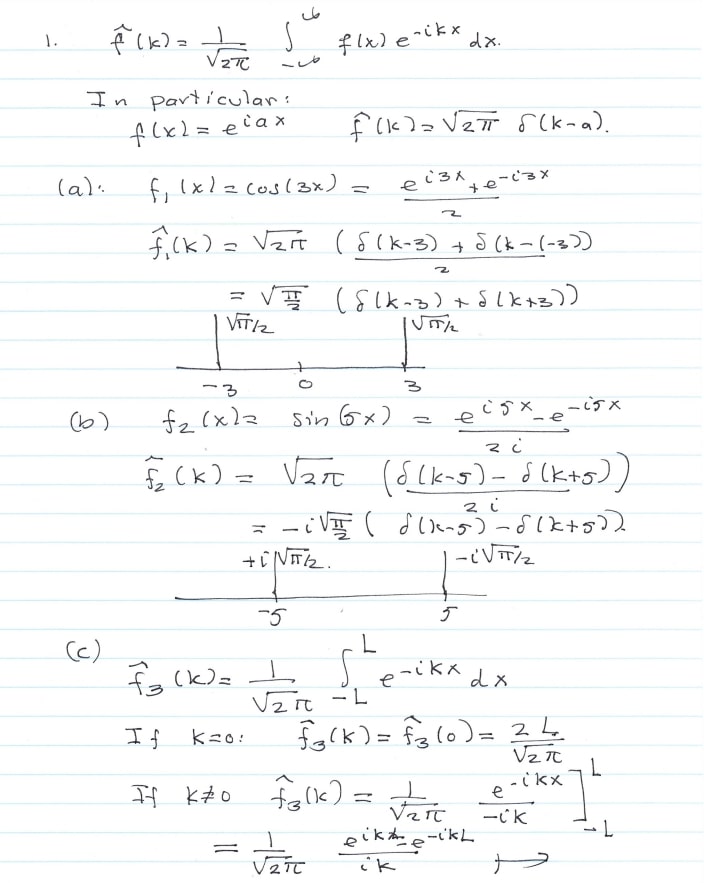 1. f̂(k) = 1/√2π ∫_{-∞}^{∞} f(x) e^{-ikx} dx.
In particular:
f(x) = e^{iax}    f̂(k) = √2π δ(k-a).
(a): f₁(x) = cos(3x) = (e^{i3x} + e^{-i3x})/2
f̂₁(k) = √2π (δ(k-3) + δ(k-(-3))/2
= √π/2 (δ(k-3) + δ(k+3))
√π/2    √π/2
-3    0    3
(b) f₂(x) = sin(5x) = (e^{i5x} - e^{-i5x})/2i
f̂₂(k) = √2π (δ(k-5) - δ(k+5))/2i
= -i√π/2 (δ(k-5) - δ(k+5)).
+i√π/2.    -i√π/2
-5    5
(c)
f̂₃(k) = 1/√2π ∫_{-L}^{L} e^{-ikx} dx
If k=0: f̂₃(k) = f̂₃(0) = 2L/√2π
If k≠0 f̂₃(k) = 1/√2π e^{-ikx}/-ik ]_{-L}^{L}
= 1/√2π (e^{ikL} - e^{-ikL})/ik ↦